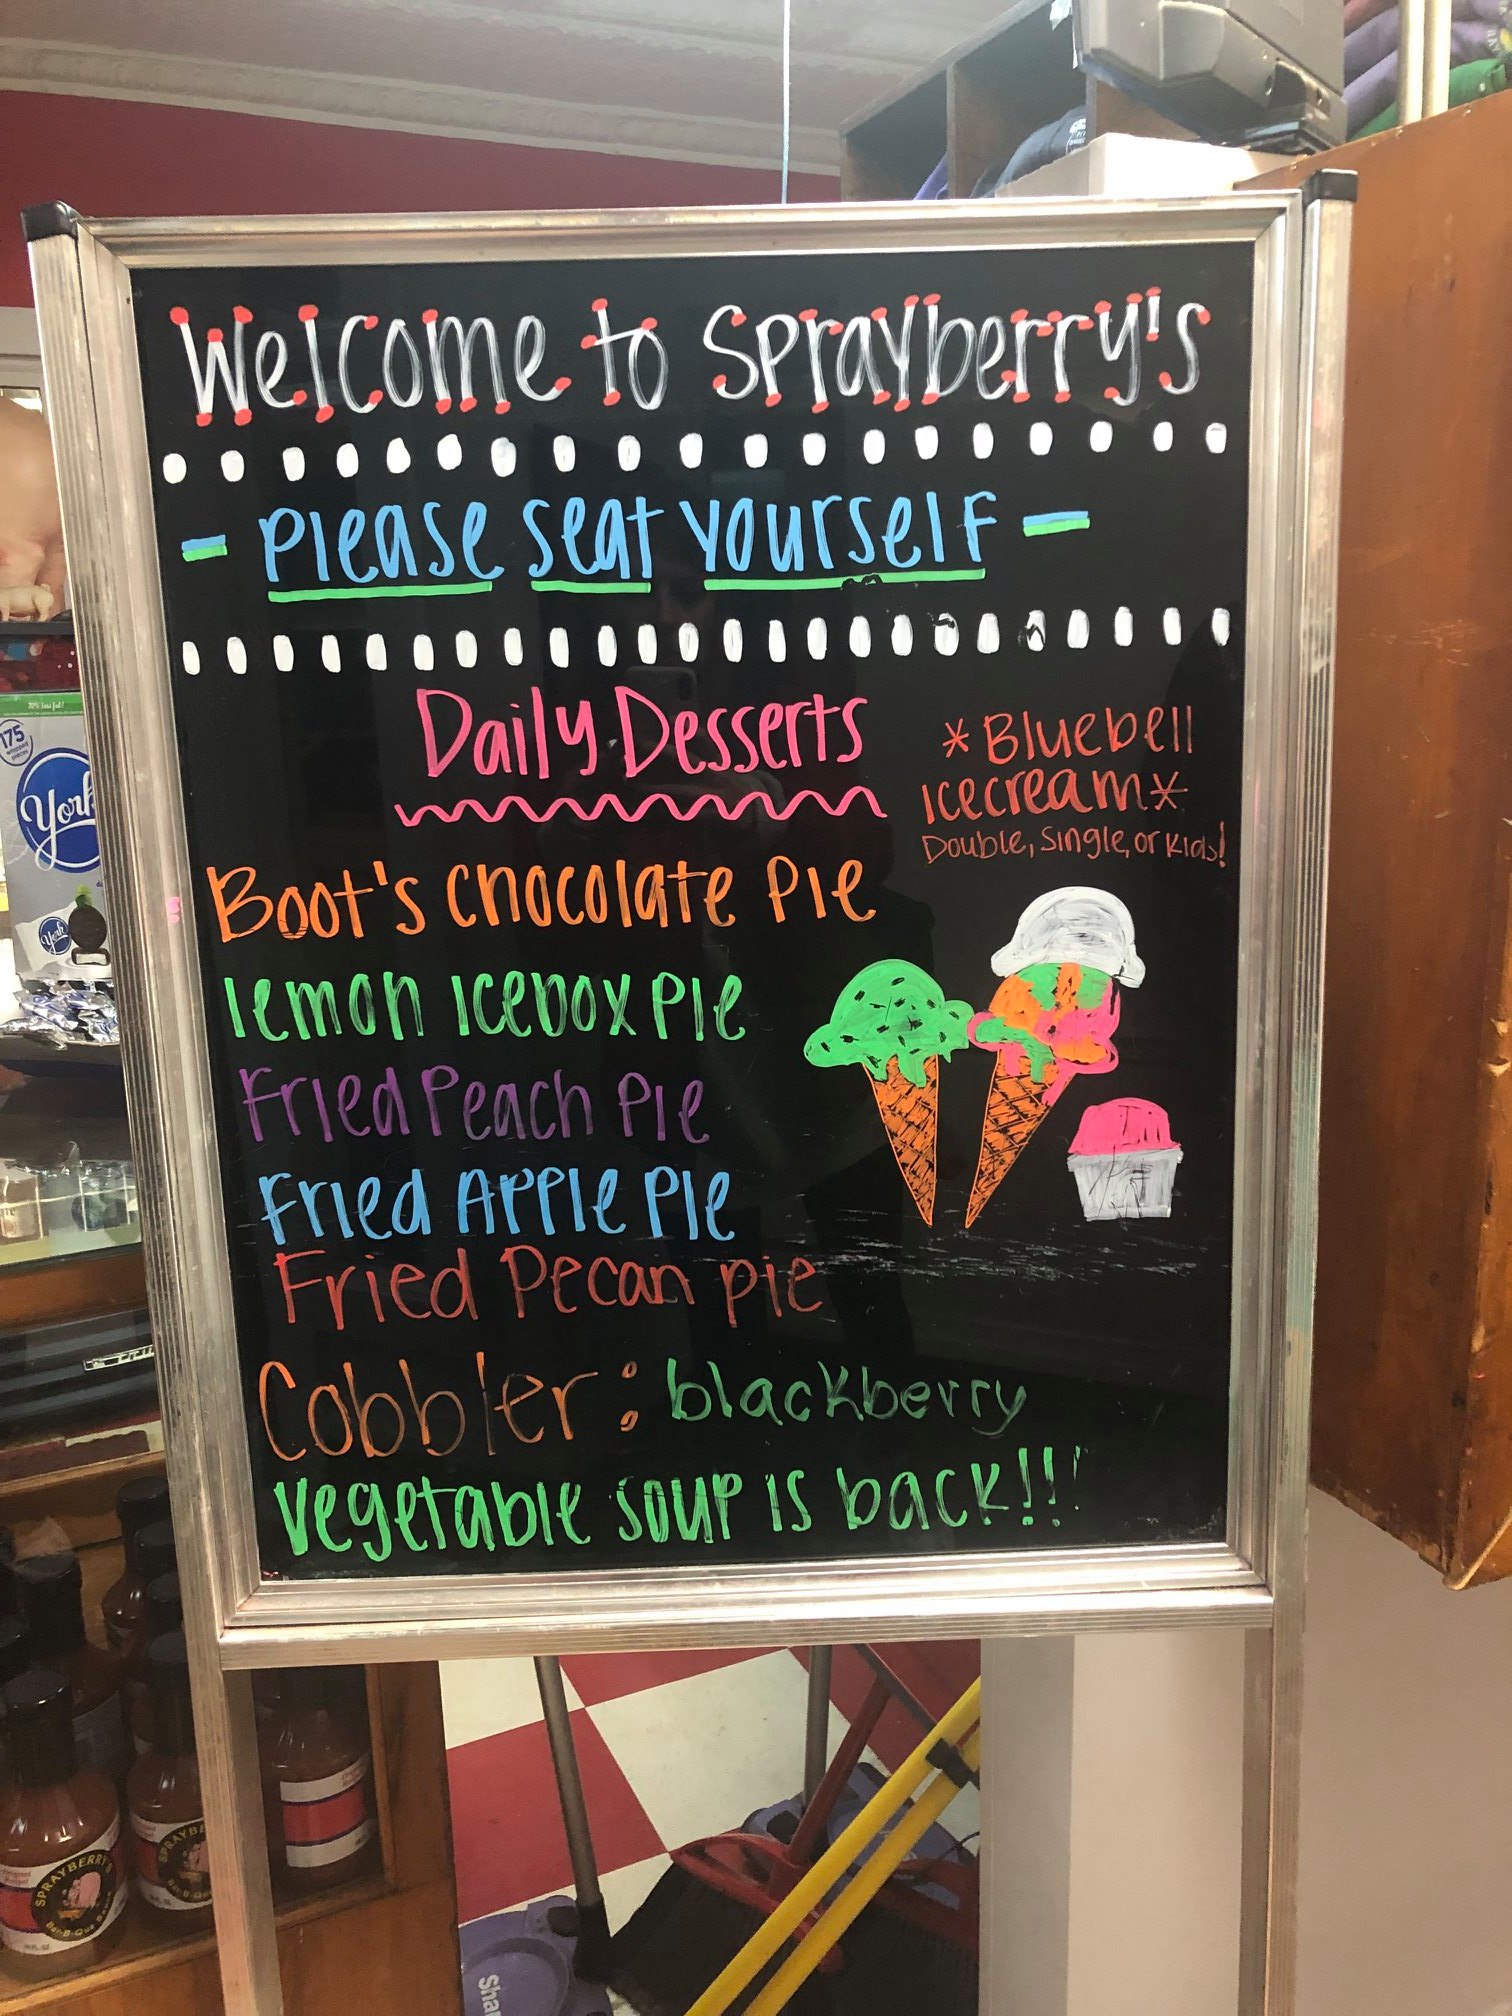 Welcome to Sprayberry's
- Please seat yourself -
Daily Desserts
*Bluebell
icecream*
Double, Single, or Kids!
Boot's chocolate Pie
lemon icebox Pie
Fried Peach Pie
Fried Apple Pie
Fried Pecan pie
Cobbler: blackberry
vegetable soup is back!!!
175
York
York
SPRAYBERRY'S
Bar-B-Que
SPRAYBE
Shar